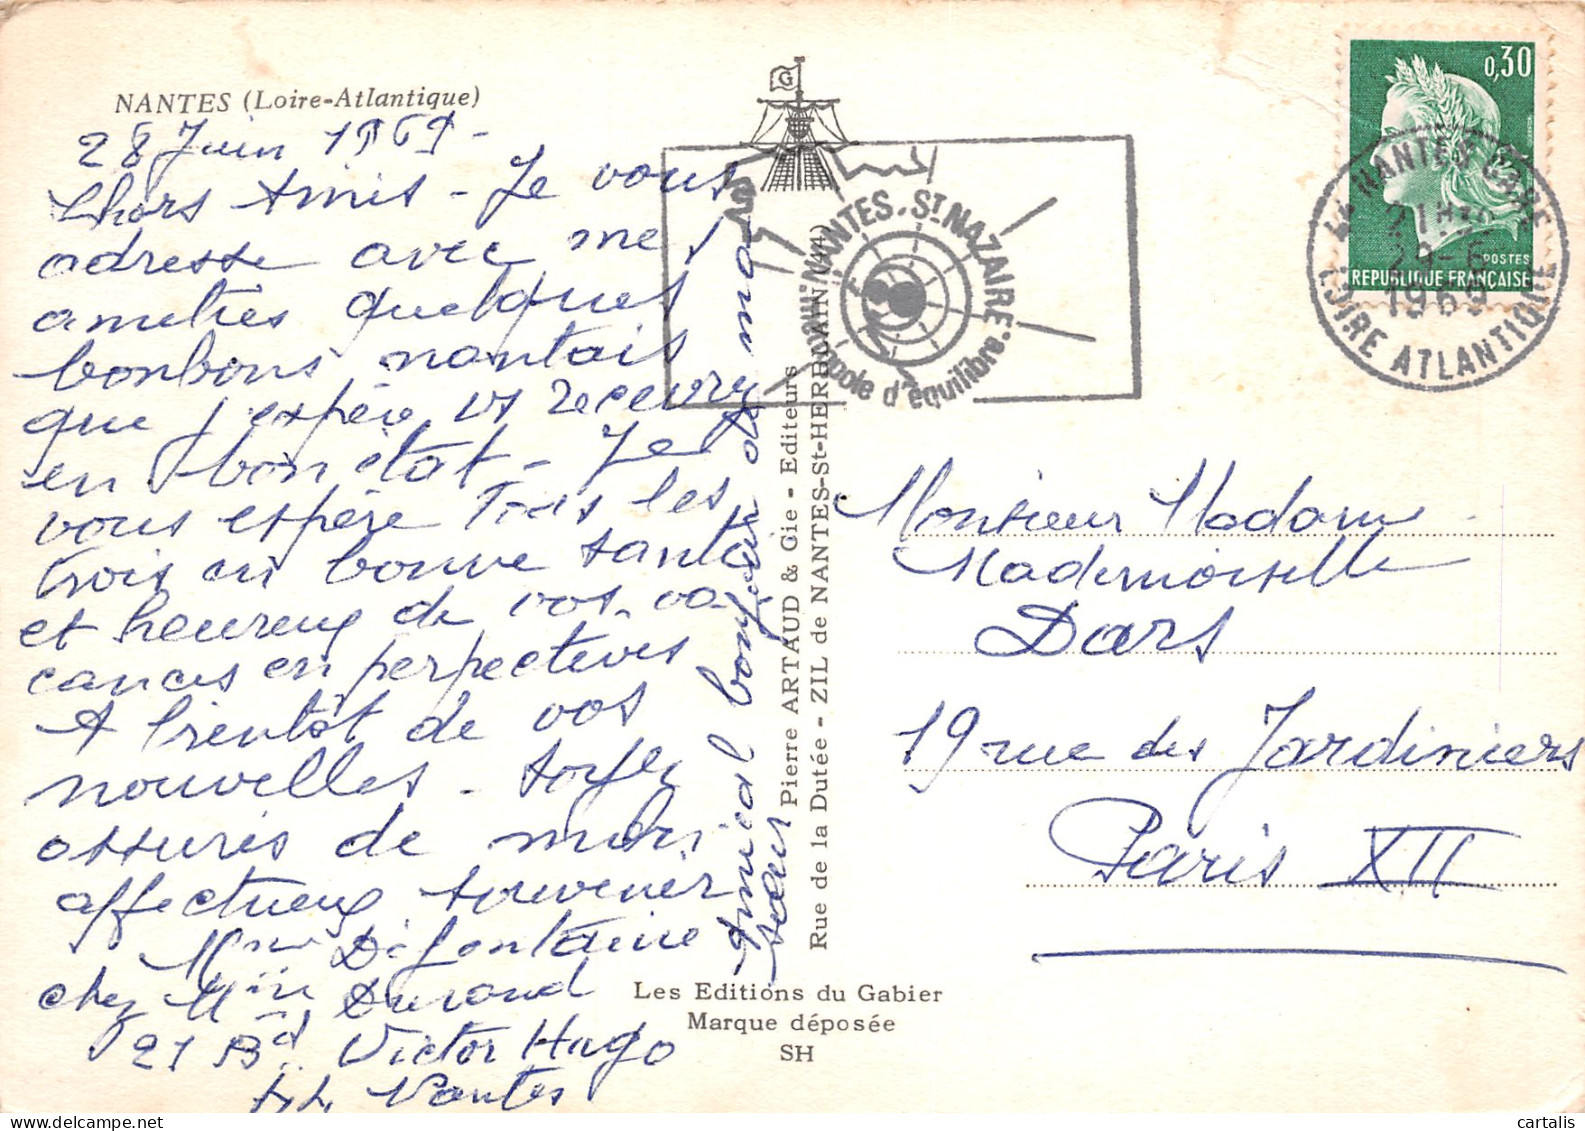 NANTES (Loire-Atlantique)
28 Juin 1969 -
Chers Amis - Je vous
adresse avec mes
amitiés quelques
bonbons nantais
que j'espère vs recevrez
en bon état - Je
vous espère Tous les
trois en bonne santé
et heureux de vos va-
cances en perpectives
A bientôt de vos
nouvelles - soyez
assurés de mon
affectueux souvenir
Mme Defontaine
chez Mme Durand
21 Bd Victor Hugo
44 Nantes
Amical bonjour de ma
sœur
G
NANTES. ST NAZAIRE
pole d'équilibre
Pierre ARTAUD & Cie - Editeurs
Rue de la Dutée - ZIL de NANTES-St-HERBLAIN (44)
Les Editions du Gabier
Marque déposée
SH
0,30
POSTES
REPUBLIQUE FRANÇAISE
44 NANTES GARE
21H15
29-6
1969
LOIRE ATLANTIQUE
Monsieur Madame
Mademoiselle
Dars
19 rue des Jardiniers
Paris XII
cartalis
www.delcampe.net